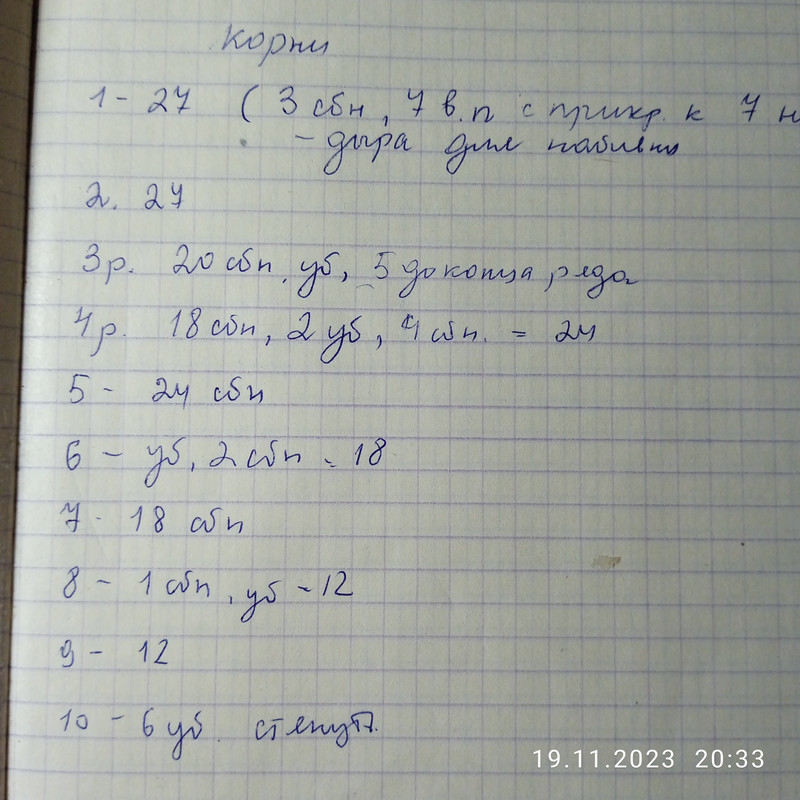 Корни
1 - 27 ( 3 сбн, 7 в.п с прикр. к 7 н
- дыра для набивки
2. 27
3р. 20 сбн, уб, 5 до конца ряда
4р. 18 сбн, 2 уб, 4 сбн. = 24
5 - 24 сбн
6 - уб, 2 сбн - 18
7 - 18 сбн
8 - 1 сбн, уб - 12
9 - 12
10 - 6 уб. стянуть.
19.11.2023 20:33